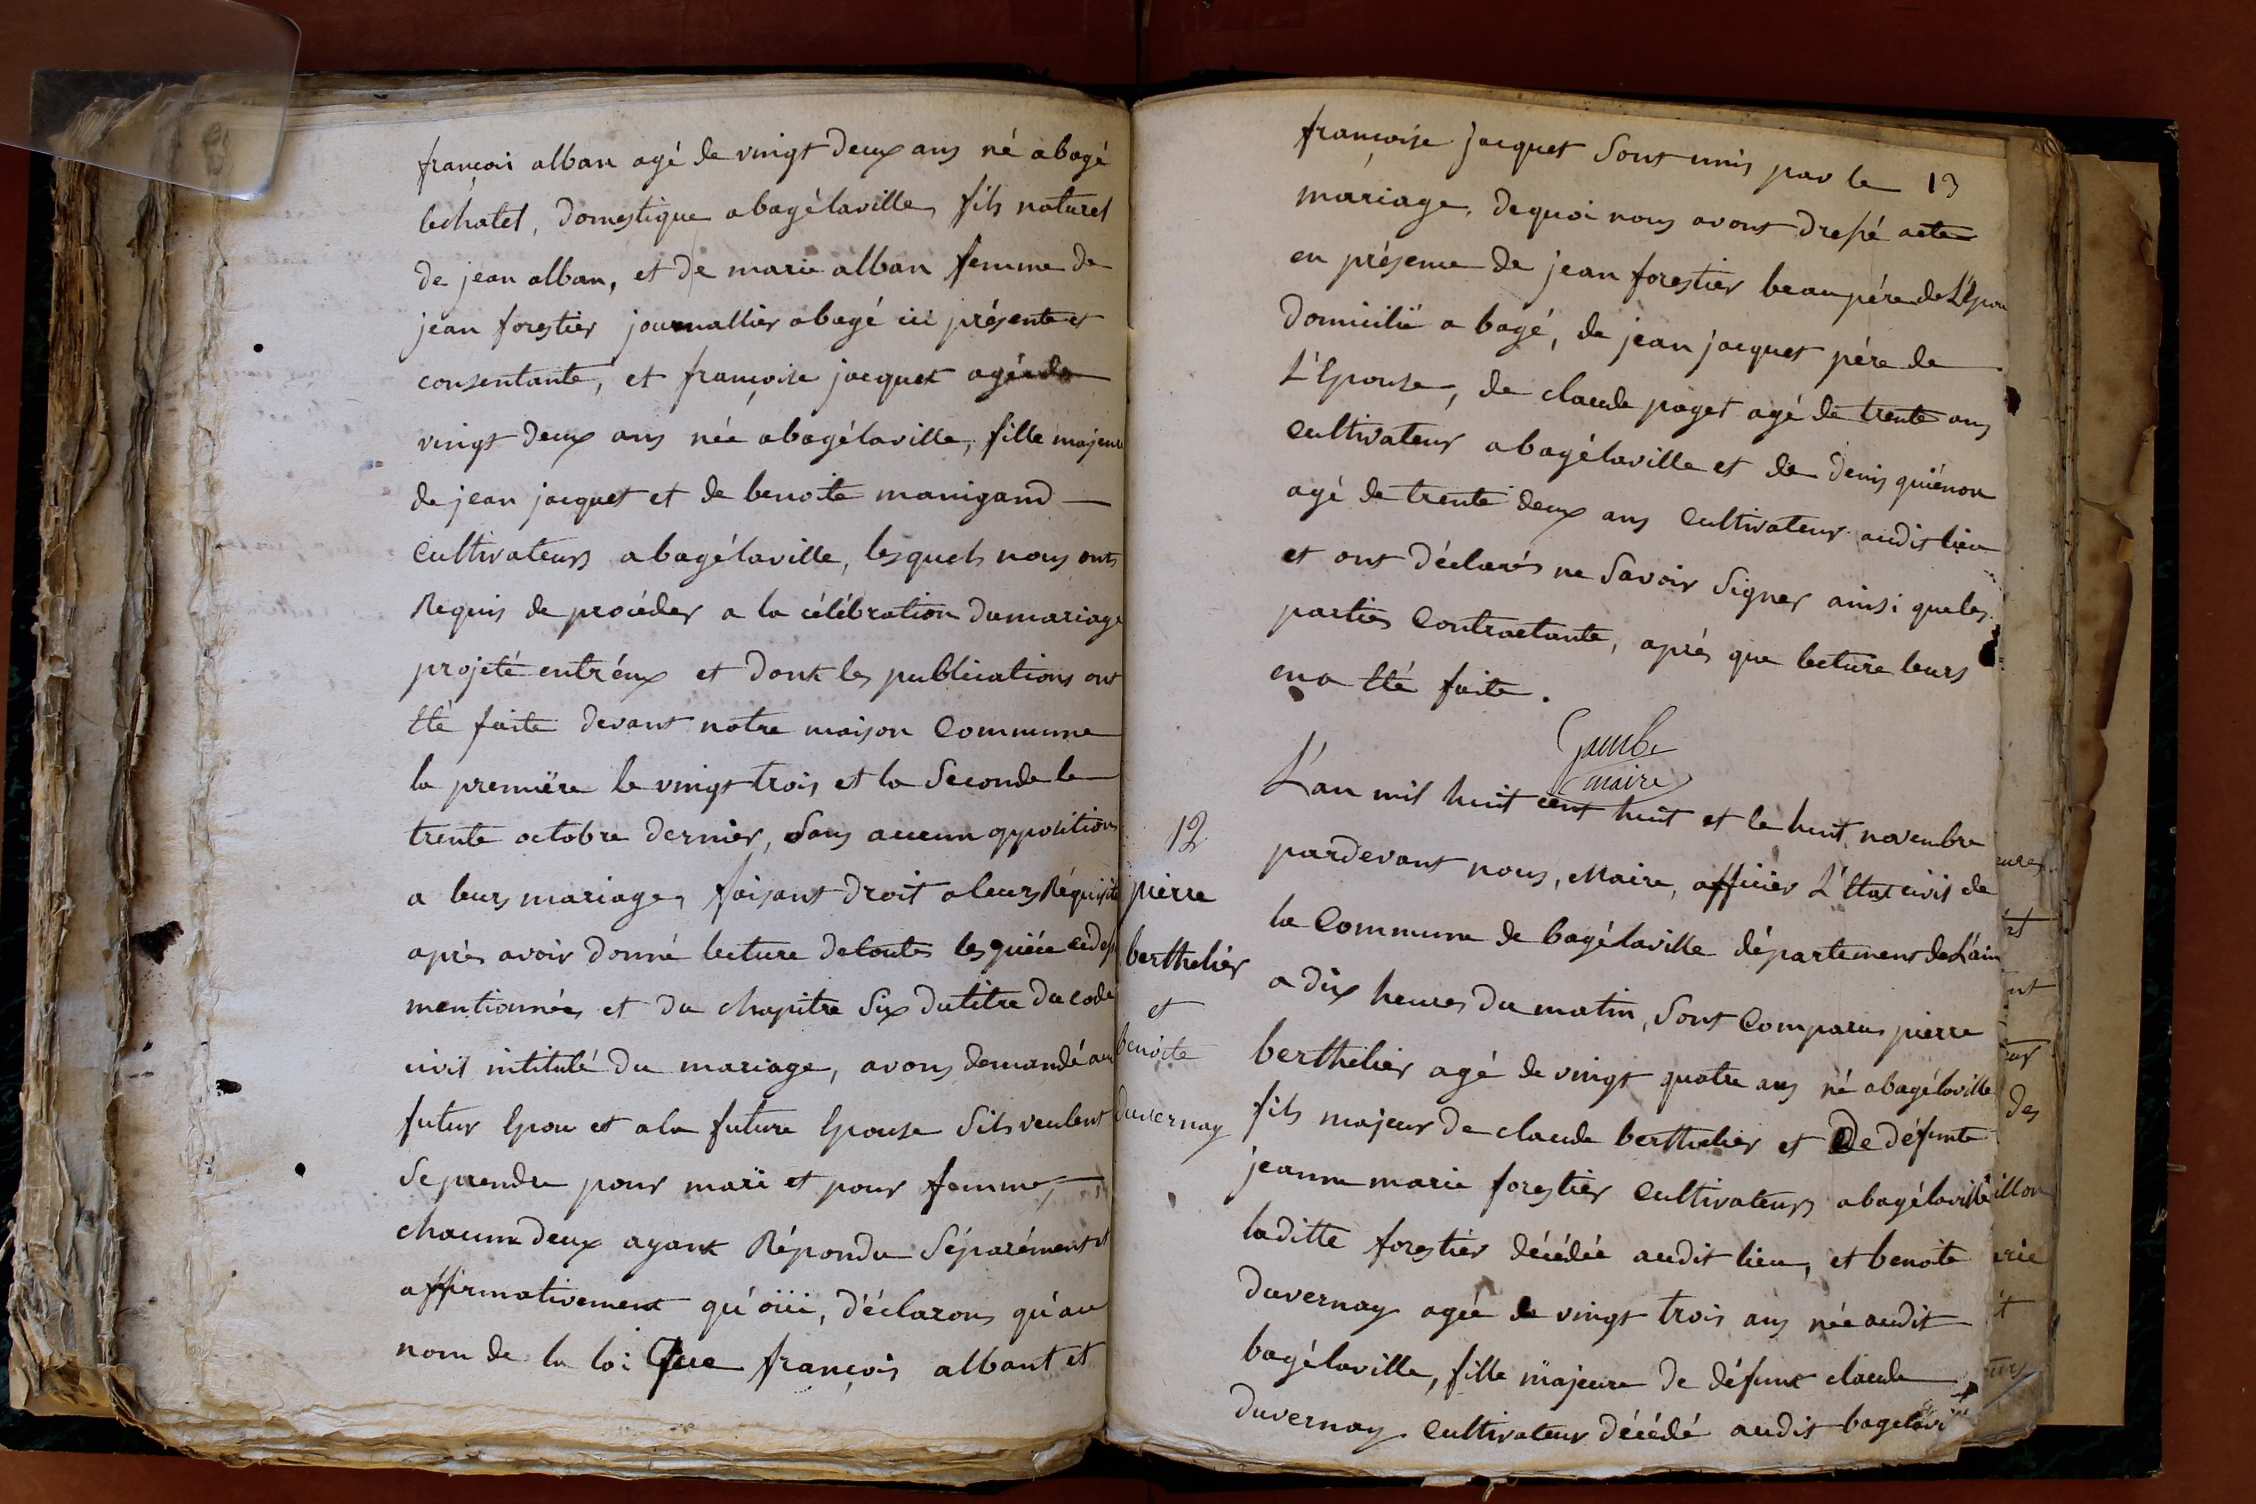 françois alban agé de vingt deux ans né abagé
lechatel, domestique abagélaville, fils naturel
de jean alban, et de marie alban femme de
jean forestier journallier abagé ici présente et
consentante, et françoise jacquet agée de
vingt deux ans née abagélaville, fille majeure
de jean jacquet et de benoite manigand
Cultivateurs abagélaville, lesquels nous onts
Requis de procéder a la célébration du mariage
projeté entréux et dont les publications ont
Eté faite devant notre maison Commune
la premiëre le vingt trois et la Seconde le
trente octobre dernier, Sans aucun opposition
a leurs mariage, faisant droit aleurs Réquisit
après avoir donné lecture detoutes les piéce cides
mentionnées et du chapitre Six dutitre du code
civil intitulé du mariage, avons demandé au
futur Epou et ala future Epouse Sils veulent
Se prendre pour mari et pour femme,
chacun deux ayant Répondu Séparément et
affirmativement qu'oüi, déclarons qu'au
nom de la loi Que françois albant et
françoise jacquet Sont unis par le 13
mariage, dequoi nous avons dressé acte
en présence de jean forestier beaupére de L'Epou
domicilié a bagé, de jean jacquet pére de
L'Epouse, de claude paget agé de trente ans
Cultivateur abagélaville et de denis guiénon
agé de trente deux ans Cultivateur audit lieu
et ont déclarés ne Savoir Signer ainsi queles
parties Contractante, après que lecture leurs
ena Eté faite.
maire
12
pierre
berthelier
et
benoite
duvernay
L'an mil huit cent huit et le huit novembre
pardevant nous, Maire, officier L'Etat civil de
la Commune de bagélaville département deL'ain
a dix heures du matin, Sont Comparus pierre
berthelier agé de vingt quatre ans né abagélaville
fils majeur de claude berthelier et De défunte
jeanne marie forestier Cultivateurs abagélaville
laditte forestier décédée audit lieu, et benoite
duvernay agée de vingt trois ans née audit
bagélaville, fille majeure de défunt claude
duvernay Cultivateur décédé audit bagelavi